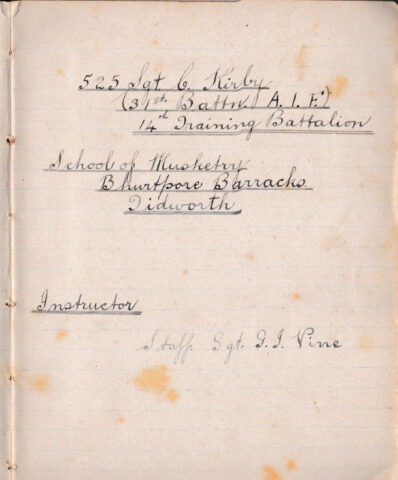 525 Sgt C. Kirby
(31st. Battn. A. I. F.)
14th Training Battalion
School of Musketry
Bhurtpore Barracks.
Tidworth
Instructor
Staff. Sgt. G. J. Vine